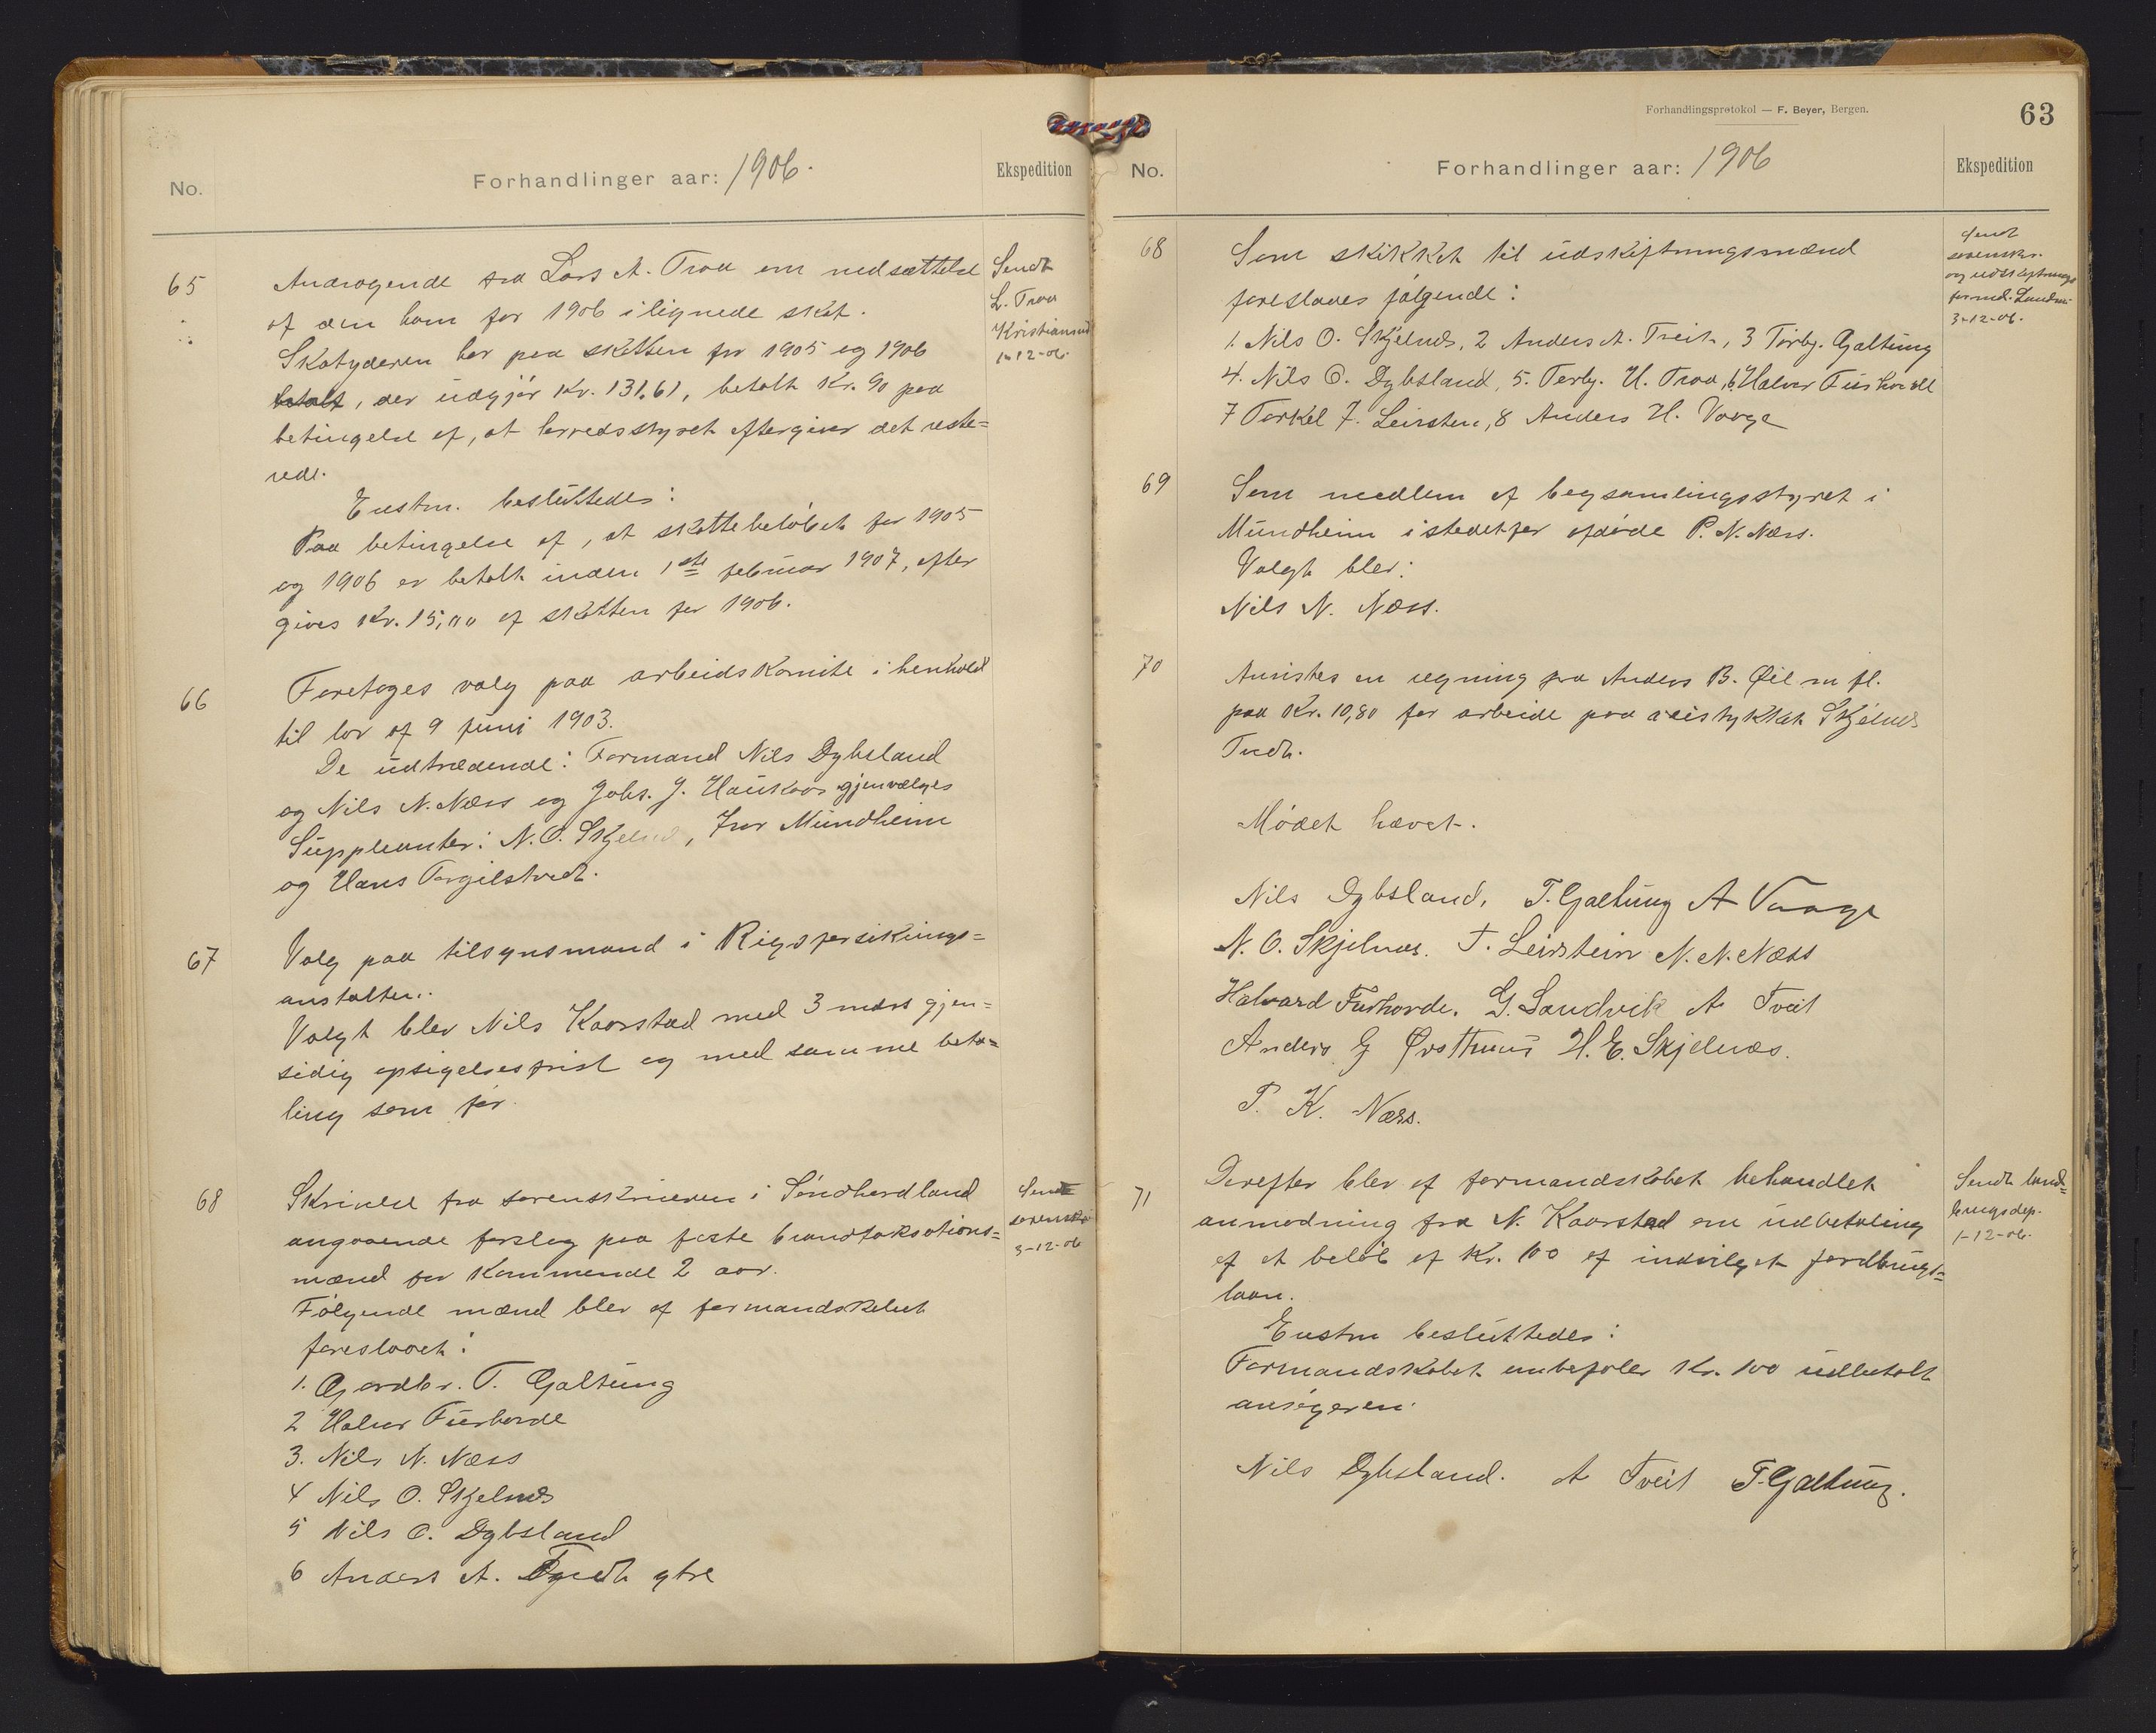 No.
Forhandlinger aar: 1906.
Ekspedition
65
Andragende fra Lars A. Traa om nedsættelse
af den ham for 1906 ilignede skat.
Skatyderen har paa skatten for 1905 og 1906
betalt, der udgjør Kr. 131,61, betalt Kr. 90 paa
betingelse af, at herredsstyret eftergiver det reste=
rede.
Enstm. besluttedes:
Paa betingelse af, at skattebeløbet for 1905
og 1906 er betalt inden 1ste februar 1907, efter
gives Kr. 15,00 af skatten for 1906.
Sendt
L. Traa
Kristiansund
1-12-06.
66
Foretoges valg paa arbeidskomite i henhold
til lov af 9 juni 1903.
De udtrædende: Formand Nils Dybsland
og Nils N. Næss og Johs. J. Haukaas gjenvælges
Suppleanter: N. O. Skjelnæs, Ivar Mundheim
og Hans Torgilstvedt.
67
Valg paa tilsynsmand i Rigsforsikrings=
anstalten.
Valgt blev Nils Kaarstad med 3 mdrs gjen=
sidig opsigelsesfrist og med samme beta=
ling som før.
68
Skrivelse fra sorenskriveren i Søndhordland
angaaende forslag paa faste brandtaksations=
mænd for kommende 2 aar.
Følgende mænd blev af formandskabet
foreslaaet:
1. Gjordbr. T. Galtung
2 Halvor Furhovde
3. Nils N. Næss
4 Nils O. Skjelnæs
5 Nils O. Dybsland
6 Anders A. Tvedt ytre
Sendt
sorenskr
3-12-06
Forhandlingsprotokol — F. Beyer, Bergen.
63
No.
Forhandlinger aar: 1906
Ekspedition
68
Som skikket til udskiftningsmænd
foreslaaes følgende:
1. Nils O. Skjelnæs, 2 Anders A. Tveit, 3 Torbj. Galtung
4. Nils O. Dybsland, 5. Torbj. H. Traa, 6 Halvor Furhovde
7 Torkel J. Leirsten, 8 Anders H. Vaage
Sendt
sorenskr.
og udskiftnings
formd. Sandvi
3-12-06.
69
Som medlem af bogsamlingsstyret i
Mundheim istedetfor afdøde P. N. Næss.
Valgt blev:
Nils N. Næss.
70
Anvistes en regning fra Anders B. Øie m fl.
paa Kr. 10,80 for arbeide paa veistykket Skjelnæs
Tvedt.
Mødet hævet.
Nils Dybsland, T. Galtung A Vaage
N. O. Skjelnæs. T. Leirstein N. N. Næss
Halvard Furhovde. G. Sandvik A Tveit
Anders G Østhuus H. E. Skjelnæs.
P. K. Næss.
71
Derefter blev af formandskabet behandlet
anmodning fra N. Kaarstad om udbetaling
af et beløb af Kr. 100 af indvilget jordbrugs=
laan.
Enstm besluttedes:
Formandskabet anbefaler Kr. 100 udbetalt
ansøgeren.
Nils Dybsland. A Tveit T. Galtung.
Sendt land=
brugsdep.
1-12-06.